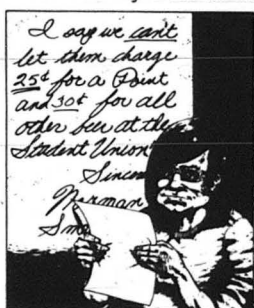 I say we can't
let them charge
25¢ for a Point
and 30¢ for all
other beer at the
Student Union
Sincere
Norman
Sm